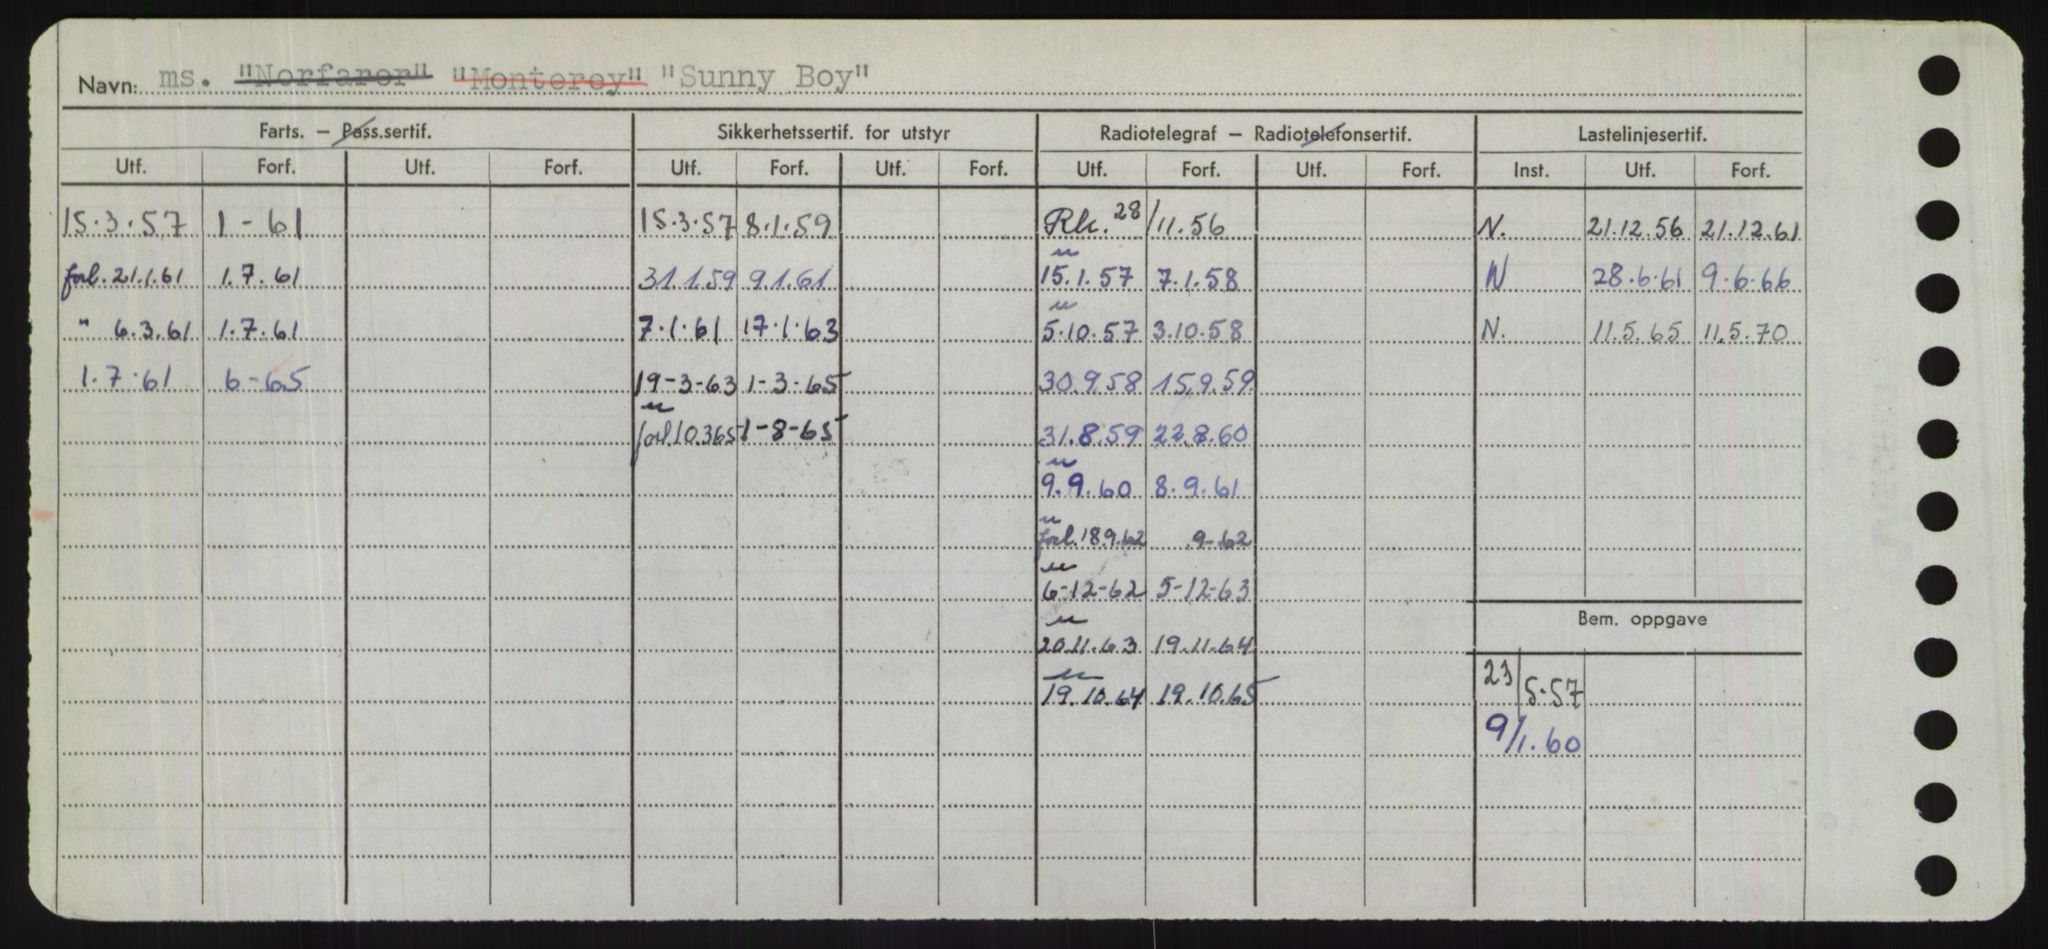 Navn: ms. "Norfaror" "Monterey" "Sunny Boy"
Farts. – Pass.sertif. Sikkerhetssertif. for utstyr Radiotelegraf – Radiotelefonsertif. Lastelinjesertif.
Utf. Forf. Utf. Forf. Utf. Forf. Utf. Forf. Utf. Forf. Utf. Forf. Inst. Utf. Forf.
15.3.57 1-61 15.3.57 8.1.59 Rk. 28/11.56 N. 21.12.56 21.12.61
forl. 21.1.61 1.7.61 31.1.59 9.1.61 15.1.57 7.1.58 N 28.6.61 9.6.66
" 6.3.61 1.7.61 7.1.61 17.1.63 5.10.57 3.10.58 N. 11.5.65 11.5.70
1.7.61 6-65 19-3-63 1-3-65 30.9.58 15.9.59
forl. 10.3.65 1-8-65 31.8.59 22.8.60
9.9.60 8.9.61
forl. 18.9.62 9-62
6-12-62 5-12-63
Bem. oppgave
20.11.63 19.11.64
19.10.64 19.10.65 23/5.57
9/1.60